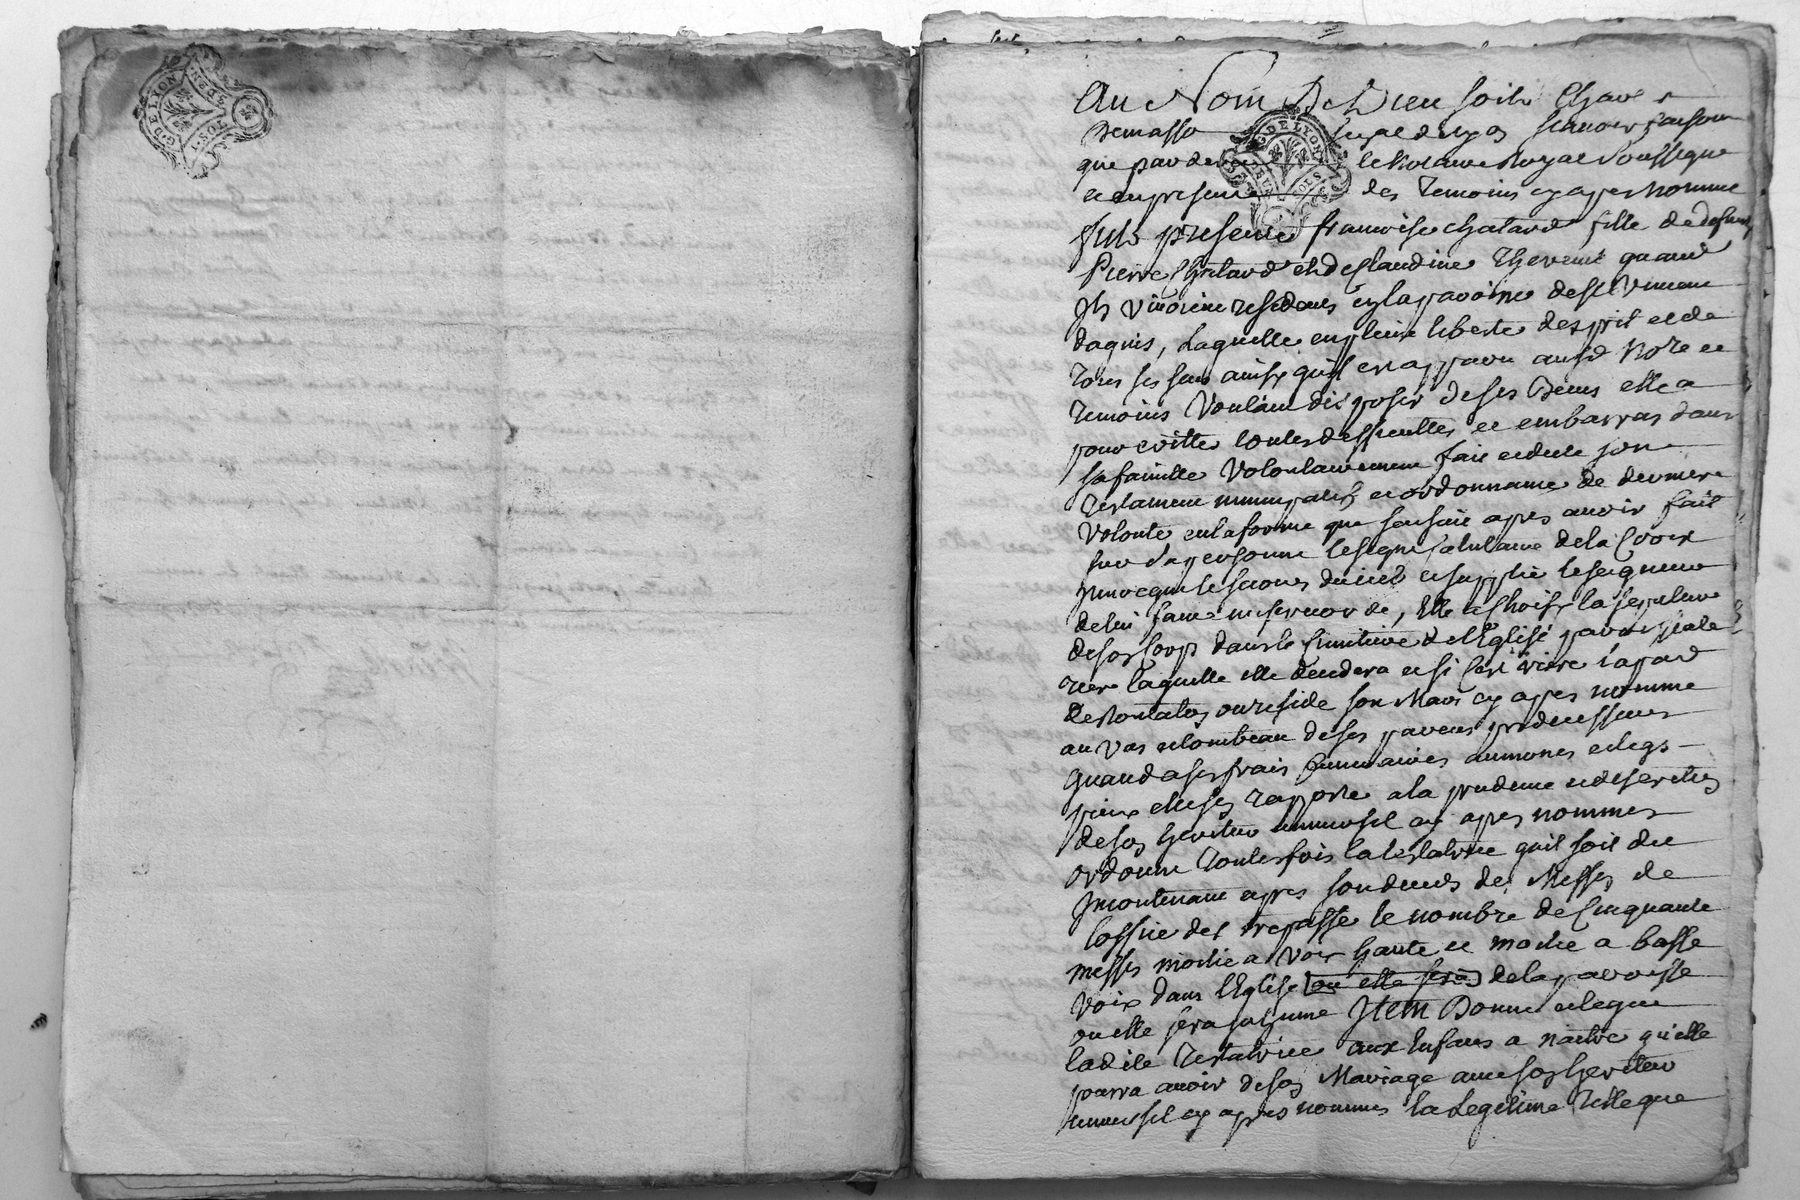 G. DE LYON
Au Nom De Dieu soit
que par devant le Notaire Royal Soussigne
et en presence des temoins cy apres nomme
fut presente francoise chatard fille de deffunt
Pierre Chatard et de Claudine Thevenet quand
Ils vivoient residents en la paroisse de St Vincent
dagnis, Laquelle en pleine liberte desprit et de
tous ses sens ainsy quil est apparu audt Nore et
temoins Voulant disposer de ses Biens elle a
pour evitter toutes difficultes et embarras dans
sa famille Volontairement fait et dicte son
Testament nuncupatif et ordonnance de derniere
Volonte en la forme que sensuit apres avoir fait
sur sa personne le signe salutaire de la Croix
Invoque le secours du ciel et supplie le seigneur
de lui faire misericorde, Elle a Choisy la sepulture
de son Corps dans le Cimitiere de lEglise parroissiale
riere laquelle elle decedera et si cest riere
ou reside son Mary cy apres nomme
au Vas et tombeau de ses parens predecesseurs
quand a ses frais funeraires aumones et legs
pieux elle sen rapporte a la prudence et discretion
de son heritier universel cy apres nommes
ordonne toutesfois la testatrice quil soit dit
Incontinant apres son deces des Messes de
loffice des trepasse le nombre de Cinquante
messes moitie a voix haute et moitie a basse
Voix dans lEglise ou elle sera de la parroisse
ou elle sera inhume Item Donne et legue
ladite Testatrice aux Enfans a naitre quelle
pourra avoir de son Mariage avec son heritier
universel cy apres nommes la Legitime telle que